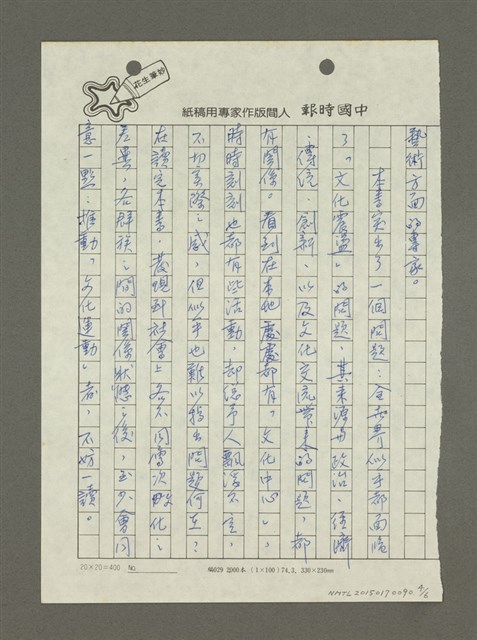 妙筆生花
中國時報 人間版作家專用稿紙
藝術方面的專家。
本書突出了一個問題：全世界似乎都面臨
了「文化震盪」的問題，其來源與政治、經濟
、傳統、創新、以及文化交流帶來的問題，都
有關係。看到在本地處處都有「文化中心」，
時時刻刻也都有些活動，卻總予人飄浮不定，
不切實際之感，但似乎也難以指出問題何在；
在讀完本書，發現到社會上各不同層次文化之
差異，各群族之間的關係狀態之後，至少會同
意一點：推動「文化運動」者，不妨一讀。
20×20=400 No.
編029 2000本.(1×100)74.2. 330×230mm
NMTL20150170090 4/6